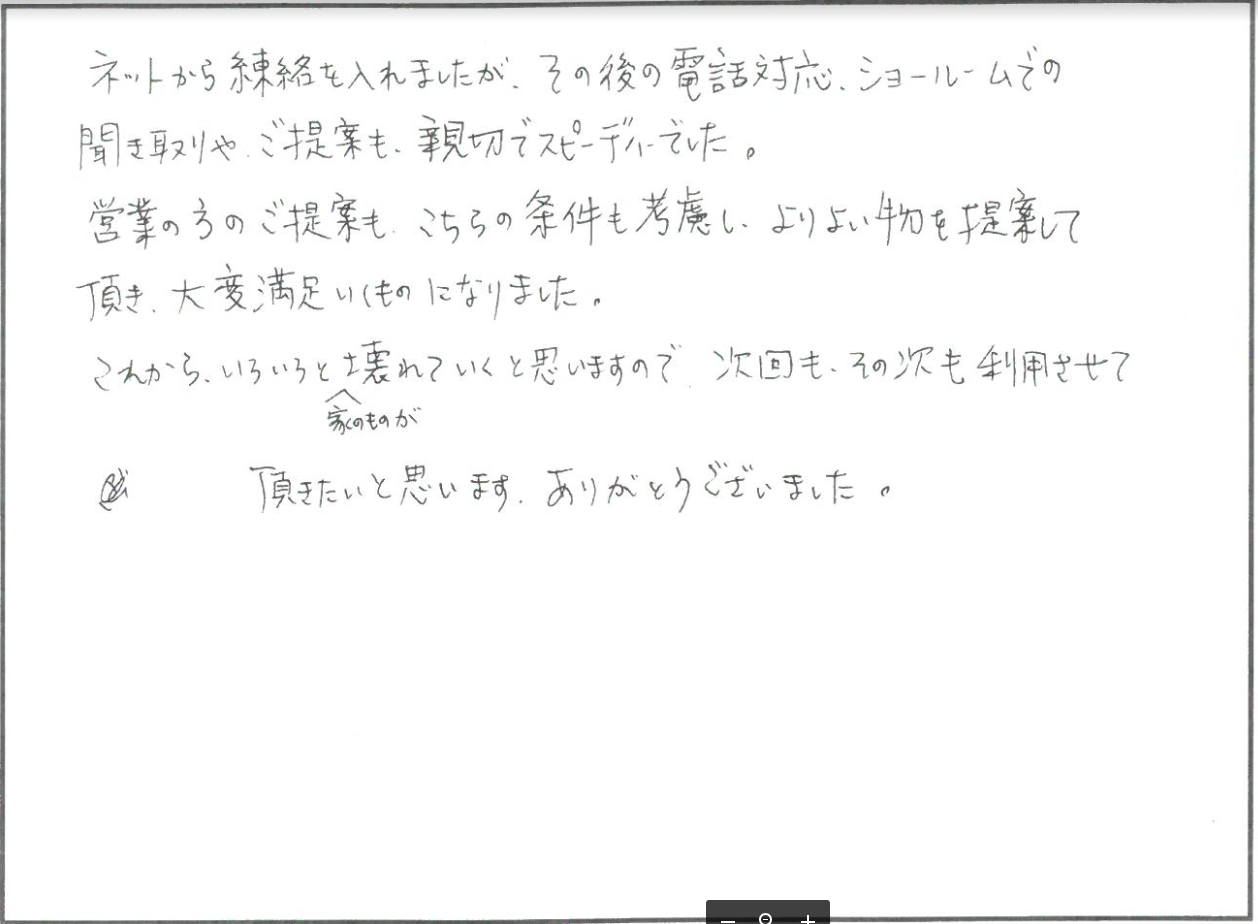 ネットから練絡を入れましたが、その後の電話対応、ショールームでの
聞き取りや、ご提案も、親切でスピーディーでした。
営業の方のご提案も、こちらの条件も考慮し、よりよい物を提案して
頂き、大変満足いくものになりました。
これから、いろいろと壊れていくと思いますので、次回も、その次も利用させて
家のものが
頂きたいと思います、ありがとうございました。